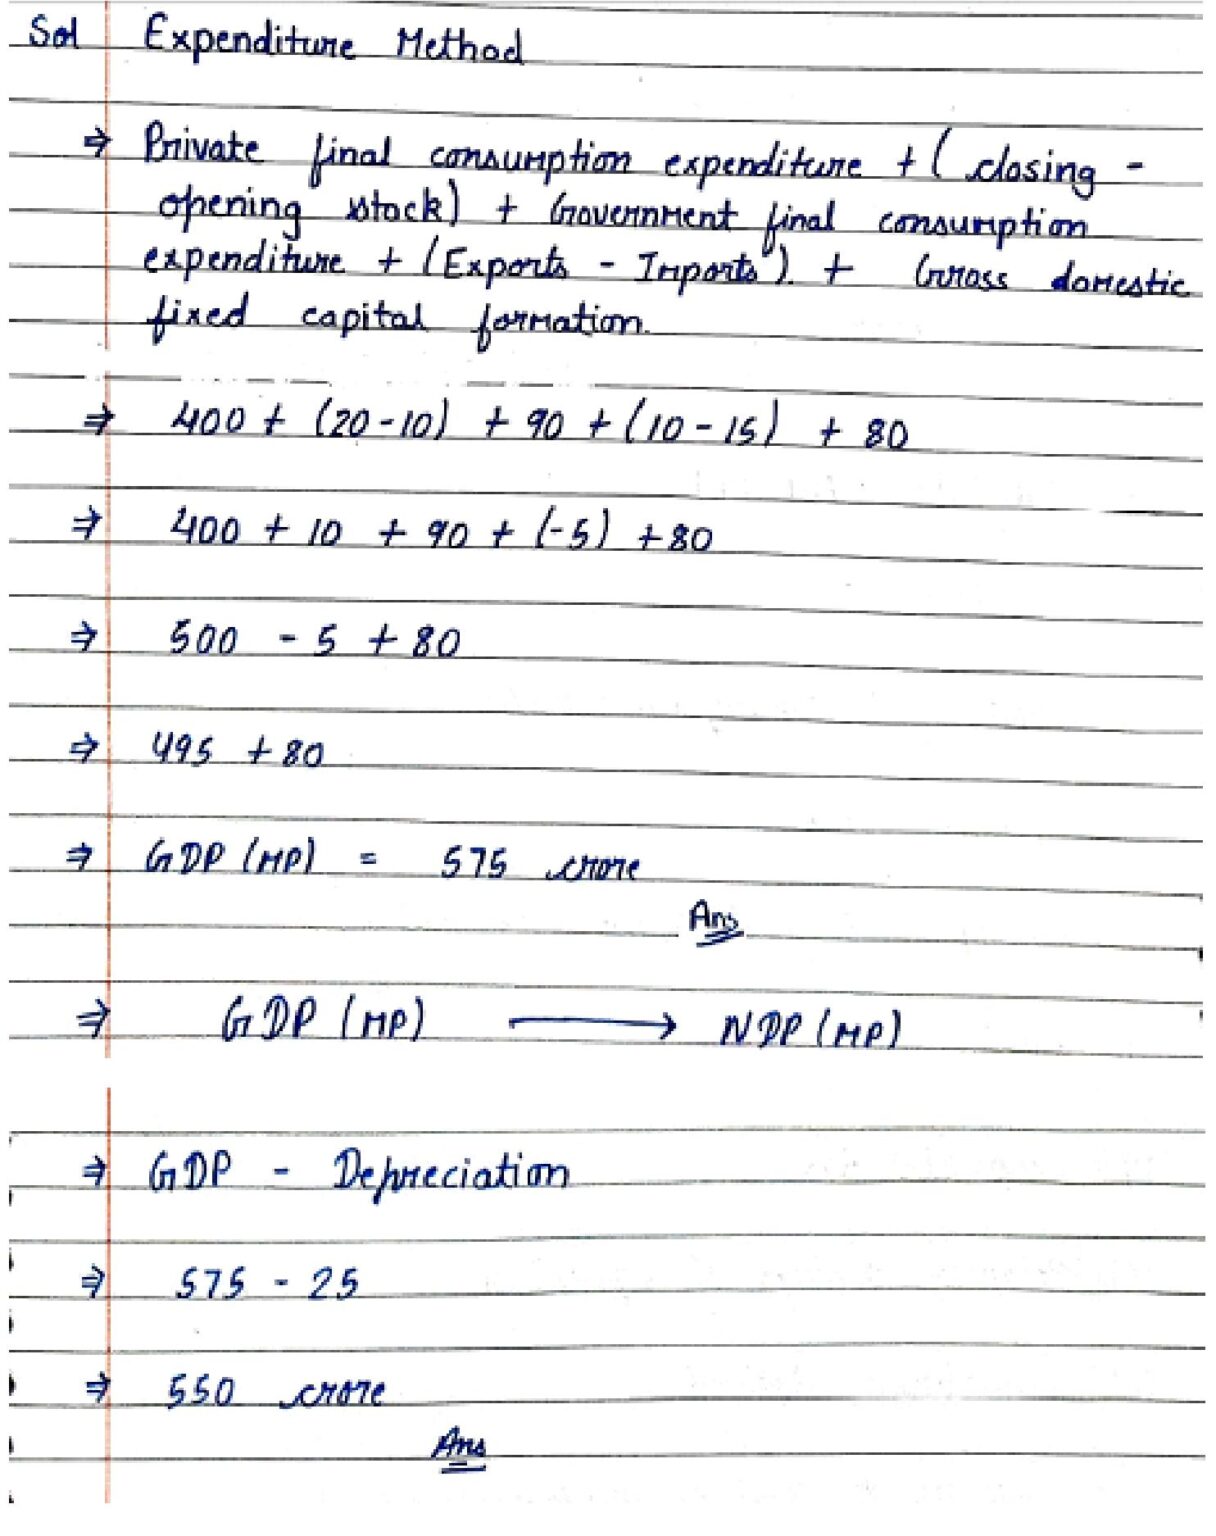 Sol Expenditure Method
⇒ Private final consumption expenditure + (closing -
opening stock) + Government final consumption
expenditure + (Exports - Imports). + Gross domestic
fixed capital formation.
⇒ 400 + (20-10) + 90 + (10-15) + 80
⇒ 400 + 10 + 90 + (-5) +80
⇒ 500 - 5 + 80
⇒ 495 + 80
⇒ GDP (MP) = 575 crore
Ans
⇒ GDP (MP) ⟶ NDP (MP)
⇒ GDP - Depreciation
⇒ 575 - 25
⇒ 550 crore
Ans